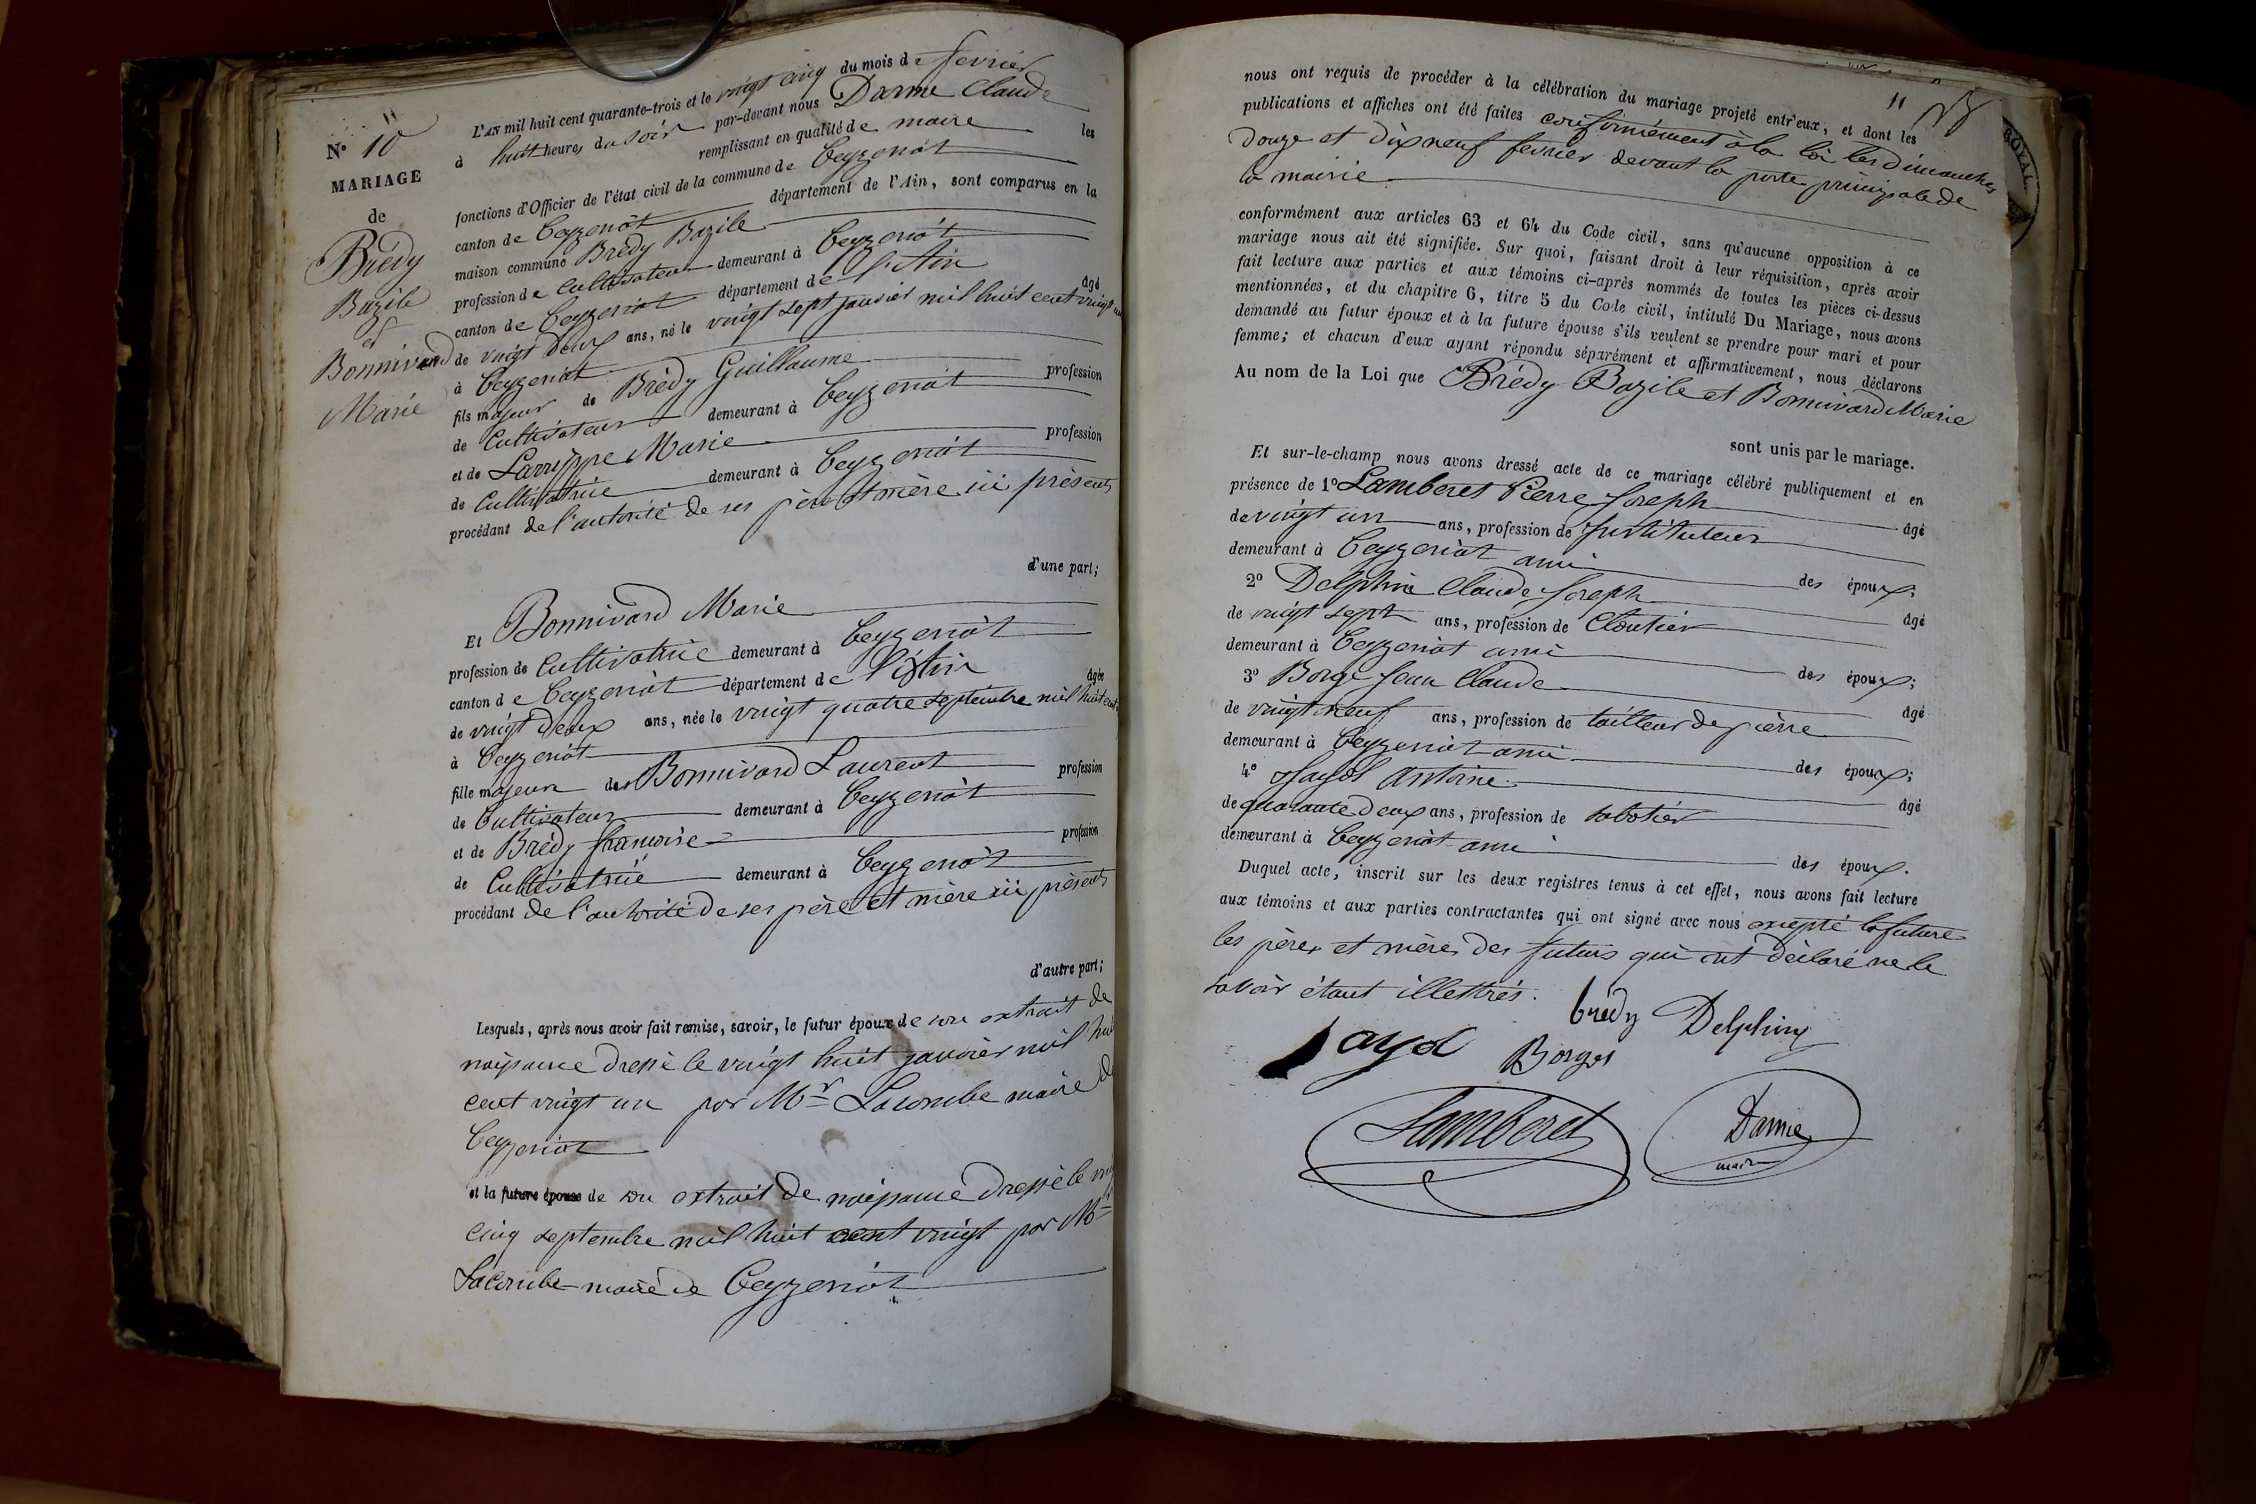 N° 10
MARIAGE
de
Brédy
Bazile
et
Bonnivard
Marie
L'AN mil huit cent quarante-trois et le vingt cinq du mois de fevrier
à huit heures du soir par-devant nous Darme Claude
remplissant en qualité de maire les
fonctions d'Officier de l'état civil de la commune de Ceyzeriat
canton de Ceyzeriat département de l'Ain, sont comparus en la
maison commune Brédy Bazile
profession de Cultivateur demeurant à Ceyzeriat
canton de Ceyzeriat département de l'Ain âgé
de vingt deux ans, né le vingt sept janvier mil huit cent vingt un
à Ceyzeriat
fils majeur de Brédy Guillaume profession
de Cultivateur demeurant à Ceyzeriat
et de Larrippe Marie profession
de Cultivatrice demeurant à Ceyzeriat
procédant de l'autorité de ses père et mère ici présents
d'une part;
Et Bonnivard Marie
profession de Cultivatrice demeurant à Ceyzeriat
canton de Ceyzeriat département de l'Ain âgée
de vingt deux ans, née le vingt quatre septembre mil huit cent
à Ceyzeriat
fille majeure de Bonnivard Laurent profession
de Cultivateur demeurant à Ceyzeriat
et de Brédy françoise profession
de Cultivatrice demeurant à Ceyzeriat
procédant de l'autorité de ses père et mère ici présents
d'autre part;
Lesquels, après nous avoir fait remise, savoir, le futur époux de son extrait de
naissance dressé le vingt huit janvier mil huit
cent vingt un par Mr Lacombe maire de
Ceyzeriat
et la future épouse de son extrait de naissance dressé le
cinq septembre mil huit cent vingt par Mr
Lacombe maire de Ceyzeriat
11
ROYAL
nous ont requis de procéder à la célébration du mariage projeté entr'eux, et dont les
publications et affiches ont été faites conformément à la loi les dimanches
douze et dix neuf fevrier devant la porte principale de
la mairie
conformément aux articles 63 et 64 du Code civil, sans qu'aucune opposition à ce
mariage nous ait été signifiée. Sur quoi, faisant droit à leur réquisition, après avoir
fait lecture aux parties et aux témoins ci-après nommés de toutes les pièces ci-dessus
mentionnées, et du chapitre 6, titre 5 du Code civil, intitulé Du Mariage, nous avons
demandé au futur époux et à la future épouse s'ils veulent se prendre pour mari et pour
femme; et chacun d'eux ayant répondu séparément et affirmativement, nous déclarons
Au nom de la Loi que Brédy Bazile et Bonnivard Marie
sont unis par le mariage.
Et sur-le-champ nous avons dressé acte de ce mariage célébré publiquement et en
présence de 1° Lamberet Pierre Joseph âgé
de vingt un ans, profession de Instituteur
demeurant à Ceyzeriat ami des époux;
2° Delphin Claude Joseph âgé
de vingt sept ans, profession de Cloutier
demeurant à Ceyzeriat ami des époux;
3° Borge Jean Claude âgé
de vingt neuf ans, profession de tailleur de pierre
demeurant à Ceyzeriat ami des époux;
4° Jayol Antoine âgé
de quarante deux ans, profession de sabotier
demeurant à Ceyzeriat ami des époux.
Duquel acte, inscrit sur les deux registres tenus à cet effet, nous avons fait lecture
aux témoins et aux parties contractantes qui ont signé avec nous excepté la future
les pères et mères des futurs qui ont déclaré ne le
savoir étant illettrés.
brédy Delphin
Jayol Borges
Lamberet Darme
maire